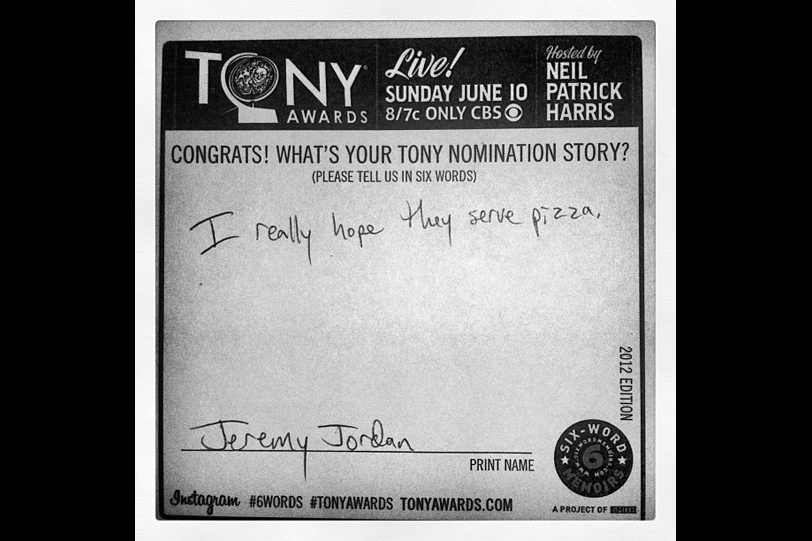 TONY AWARDS
Live!
SUNDAY JUNE 10
8/7c ONLY CBS
Hosted by
NEIL
PATRICK
HARRIS
CONGRATS! WHAT'S YOUR TONY NOMINATION STORY?
(PLEASE TELL US IN SIX WORDS)
I really hope they serve pizza.
2012 EDITION
Jeremy Jordan
PRINT NAME
SIX-WORD
6
MEMOIRS
Instagram #6WORDS #TONYAWARDS TONYAWARDS.COM
A PROJECT OF